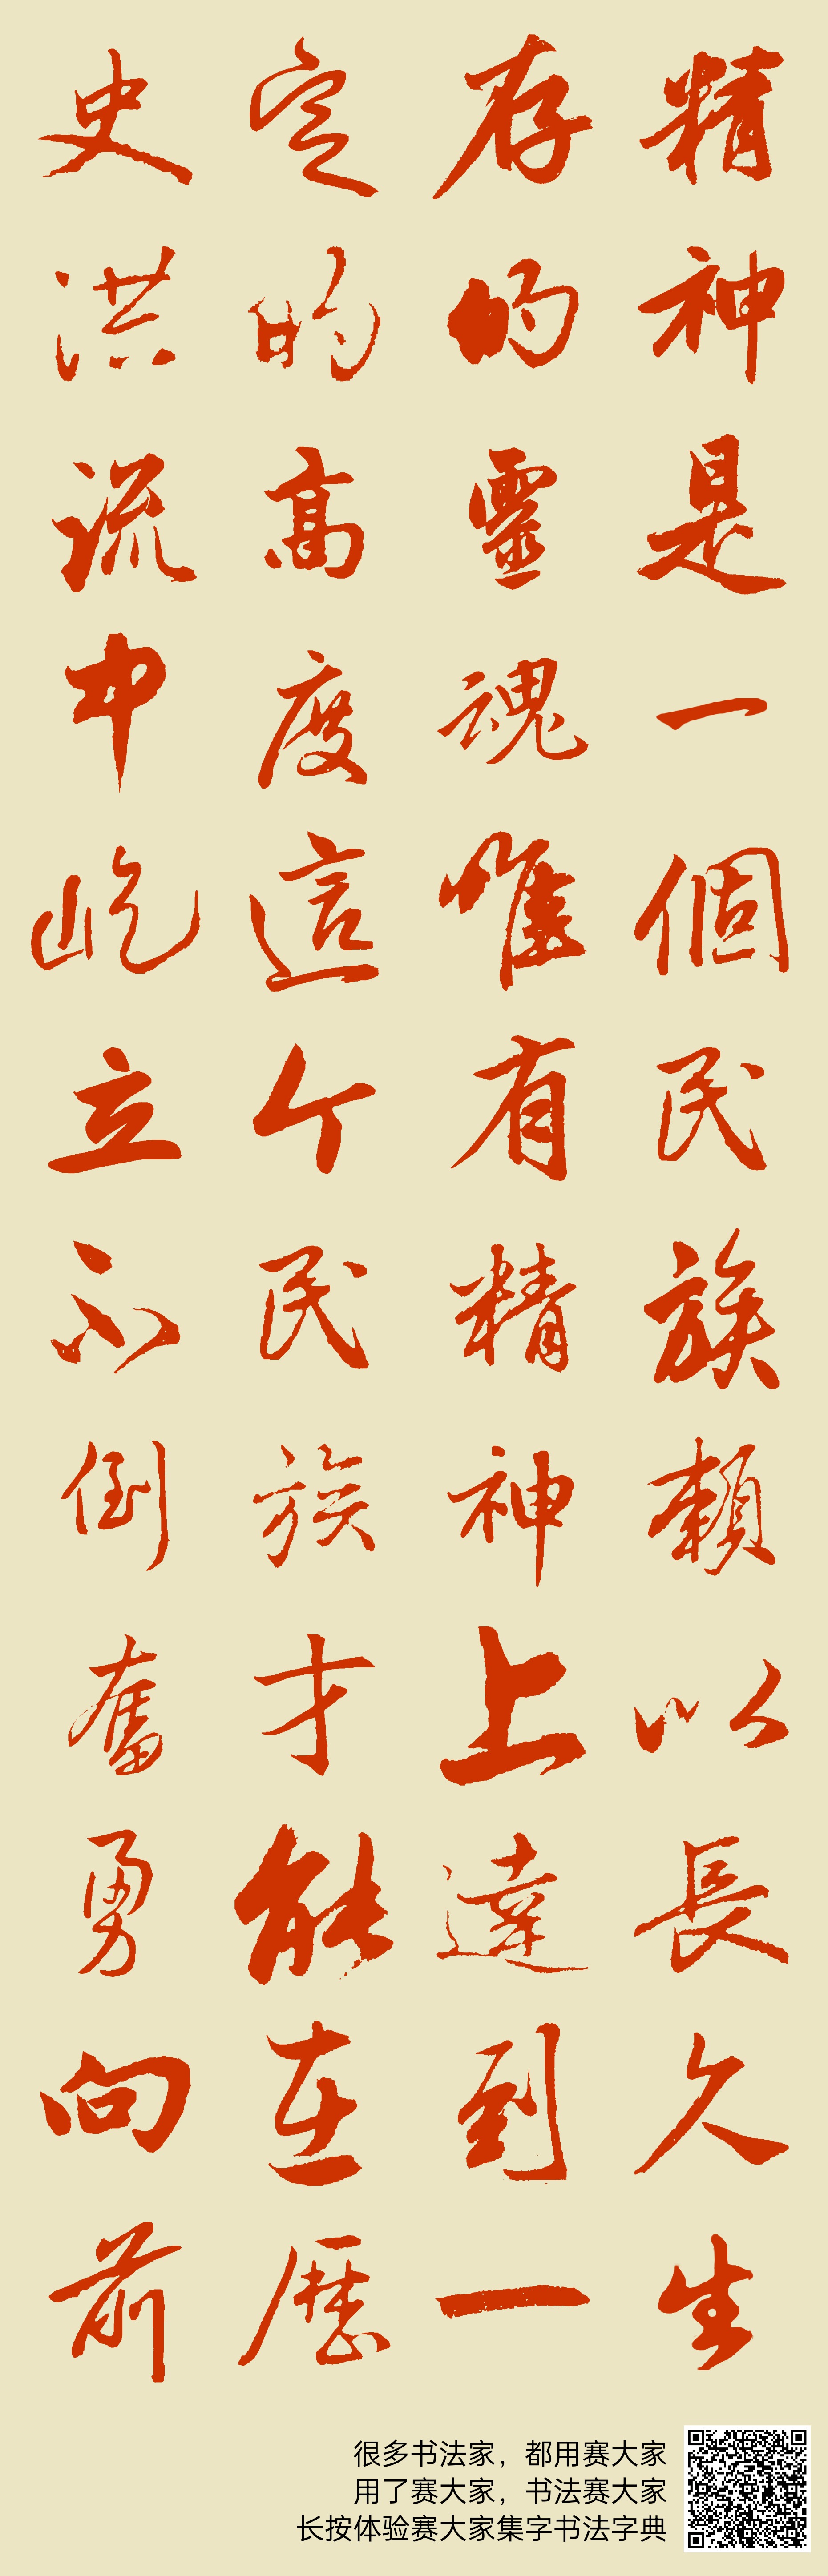 精神是一個民族賴以長久生
存的靈魂唯有精神上達到一
定的高度這个民族才能在歷
史洪流中屹立不倒奮勇向前
很多书法家，都用赛大家
用了赛大家，书法赛大家
长按体验赛大家集字书法字典